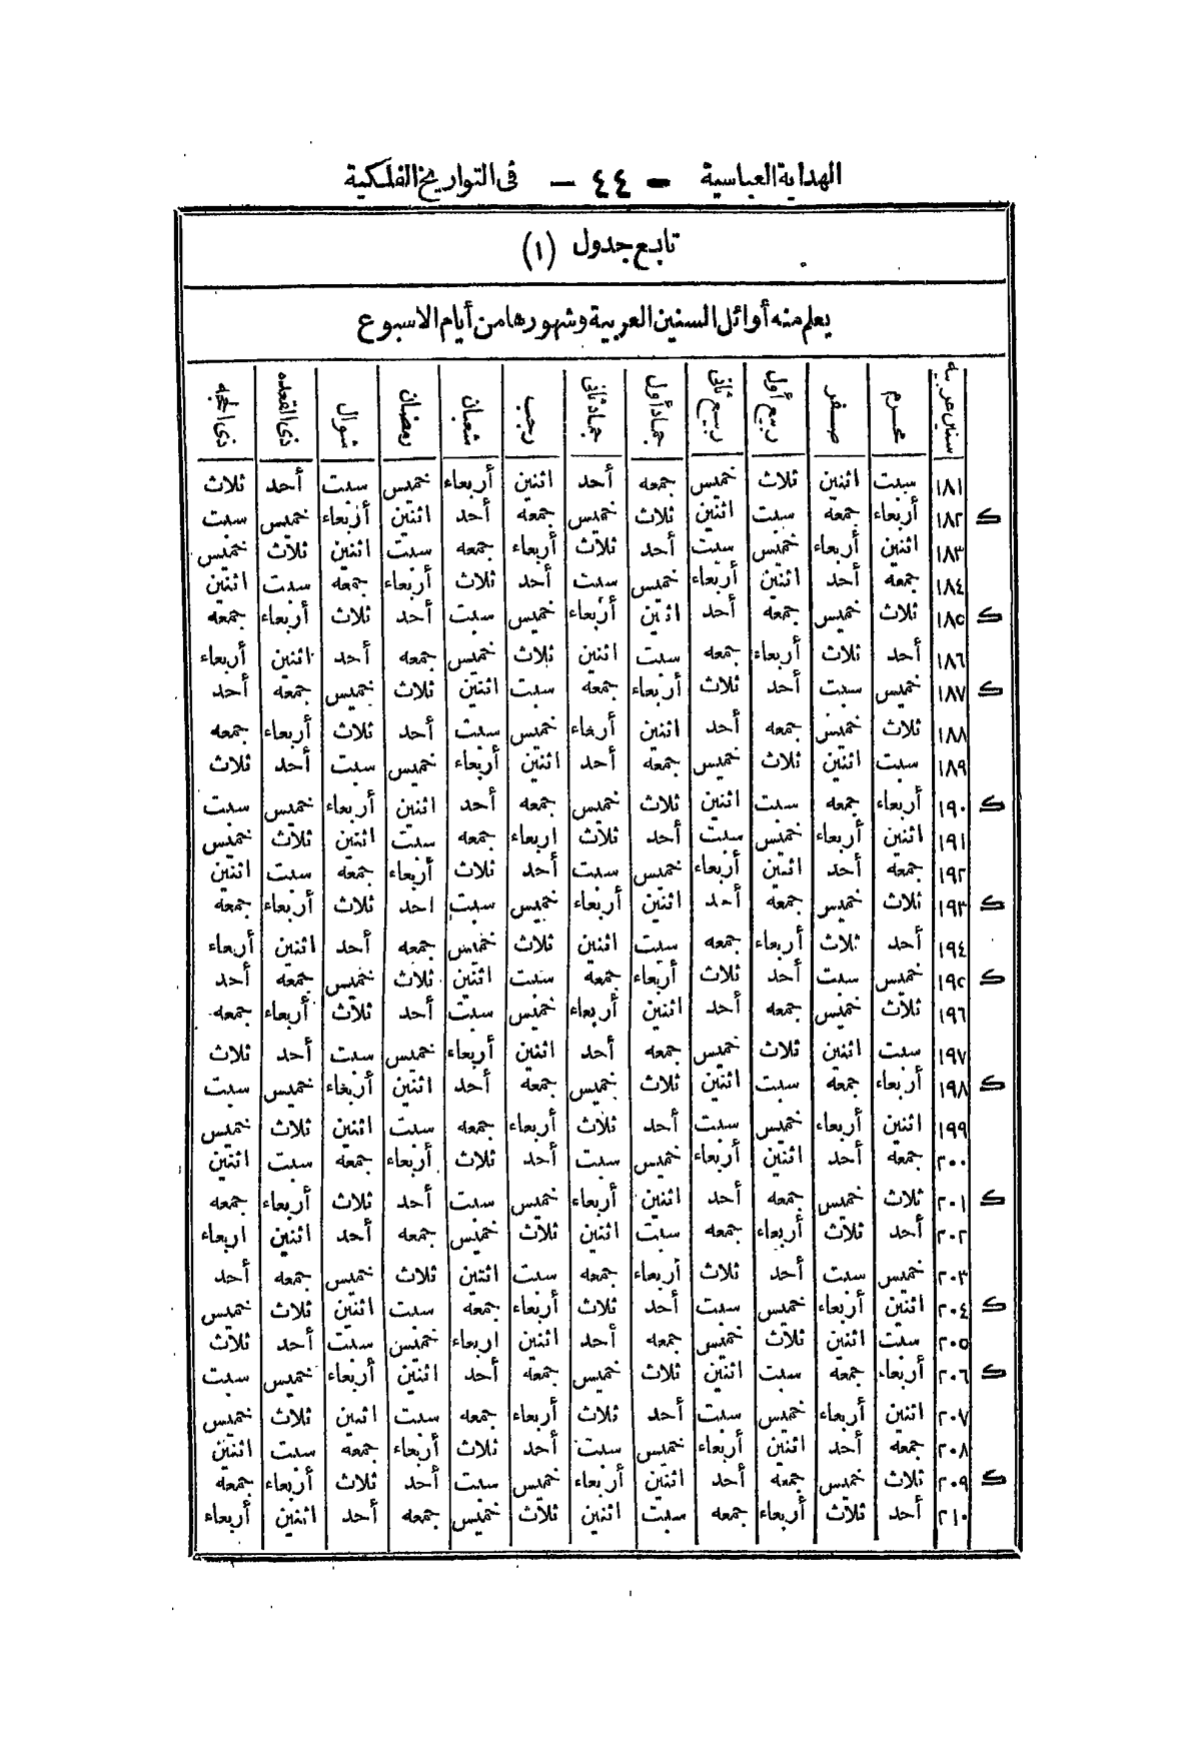 الهداية العباسية - ٤٤ - فى التواريخ الفلكية
تابع جدول (١)
يعلم منه أوائل السنين العربية وشهورها من أيام الاسبوع
سنين عربيه محرم صفر ربيع أول ربيع ثانى جماد أول جماد ثانى رجب شعبان رمضان شوال ذى القعده ذى الحجه
١٨١ سبت اثنين ثلاث خميس جمعه أحد اثنين أربعاء خميس سبت أحد ثلاث
ك ١٨٢ أربعاء جمعه سبت اثنين ثلاث خميس جمعه أحد اثنين أربعاء خميس سبت
١٨٣ اثنين أربعاء خميس سبت أحد ثلاث أربعاء جمعه سبت اثنين ثلاث خميس
١٨٤ جمعه أحد اثنين أربعاء خميس سبت أحد ثلاث أربعاء جمعه سبت اثنين
ك ١٨٥ ثلاث خميس جمعه أحد اثنين أربعاء خميس سبت أحد ثلاث أربعاء جمعه
١٨٦ أحد ثلاث أربعاء جمعه سبت اثنين ثلاث خميس جمعه أحد اثنين أربعاء
ك ١٨٧ خميس سبت أحد ثلاث أربعاء جمعه سبت اثنين ثلاث خميس جمعه أحد
١٨٨ ثلاث خميس جمعه أحد اثنين أربعاء خميس سبت أحد ثلاث أربعاء جمعه
١٨٩ سبت اثنين ثلاث خميس جمعه أحد اثنين أربعاء خميس سبت أحد ثلاث
ك ١٩٠ أربعاء جمعه سبت اثنين ثلاث خميس جمعه أحد اثنين أربعاء خميس سبت
١٩١ اثنين أربعاء خميس سبت أحد ثلاث اربعاء جمعه سبت اثنين ثلاث خميس
١٩٢ جمعه أحد اثنين أربعاء خميس سبت أحد ثلاث أربعاء جمعه سبت اثنين
ك ١٩٣ ثلاث خميس جمعه أحد اثنين أربعاء خميس سبت احد ثلاث أربعاء جمعه
١٩٤ أحد ثلاث أربعاء جمعه سبت اثنين ثلاث خميس جمعه أحد اثنين أربعاء
ك ١٩٥ خميس سبت أحد ثلاث أربعاء جمعه سبت اثنين ثلاث خميس جمعه أحد
١٩٦ ثلاث خميس جمعه أحد اثنين أربعاء خميس سبت أحد ثلاث أربعاء جمعه
١٩٧ سبت اثنين ثلاث خميس جمعه أحد اثنين أربعاء خميس سبت أحد ثلاث
ك ١٩٨ أربعاء جمعه سبت اثنين ثلاث خميس جمعه أحد اثنين أربعاء خميس سبت
١٩٩ اثنين أربعاء خميس سبت أحد ثلاث أربعاء جمعه سبت اثنين ثلاث خميس
٢٠٠ جمعه أحد اثنين أربعاء خميس سبت أحد ثلاث أربعاء جمعه سبت اثنين
ك ٢٠١ ثلاث خميس جمعه أحد اثنين أربعاء خميس سبت أحد ثلاث أربعاء جمعه
٢٠٢ أحد ثلاث أربعاء جمعه سبت اثنين ثلاث خميس جمعه أحد اثنين اربعاء
٢٠٣ خميس سبت أحد ثلاث أربعاء جمعه سبت اثنين ثلاث خميس جمعه أحد
ك ٢٠٤ اثنين أربعاء خميس سبت أحد ثلاث أربعاء جمعه سبت اثنين ثلاث خميس
٢٠٥ سبت اثنين ثلاث خميس جمعه أحد اثنين اربعاء خميس سبت أحد ثلاث
ك ٢٠٦ أربعاء جمعه سبت اثنين ثلاث خميس جمعه أحد اثنين أربعاء خميس سبت
٢٠٧ اثنين أربعاء خميس سبت أحد ثلاث أربعاء جمعه سبت اثنين ثلاث خميس
٢٠٨ جمعه أحد اثنين أربعاء خميس سبت أحد ثلاث أربعاء جمعه سبت اثنين
ك ٢٠٩ ثلاث خميس جمعه أحد اثنين أربعاء خميس سبت أحد ثلاث أربعاء جمعه
٢١٠ أحد ثلاث أربعاء جمعه سبت اثنين ثلاث خميس جمعه أحد اثنين أربعاء